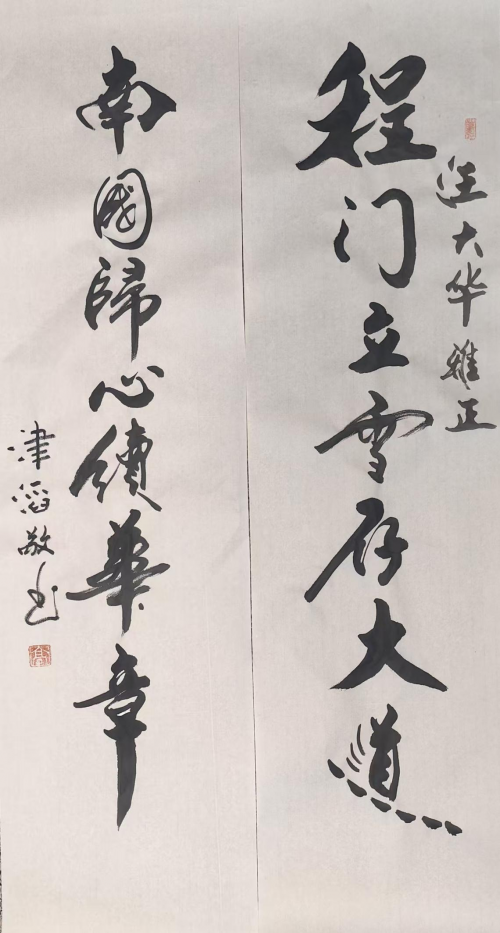 汪大华雅正
程门立雪存大道
南國歸心續華章
津滔敬书